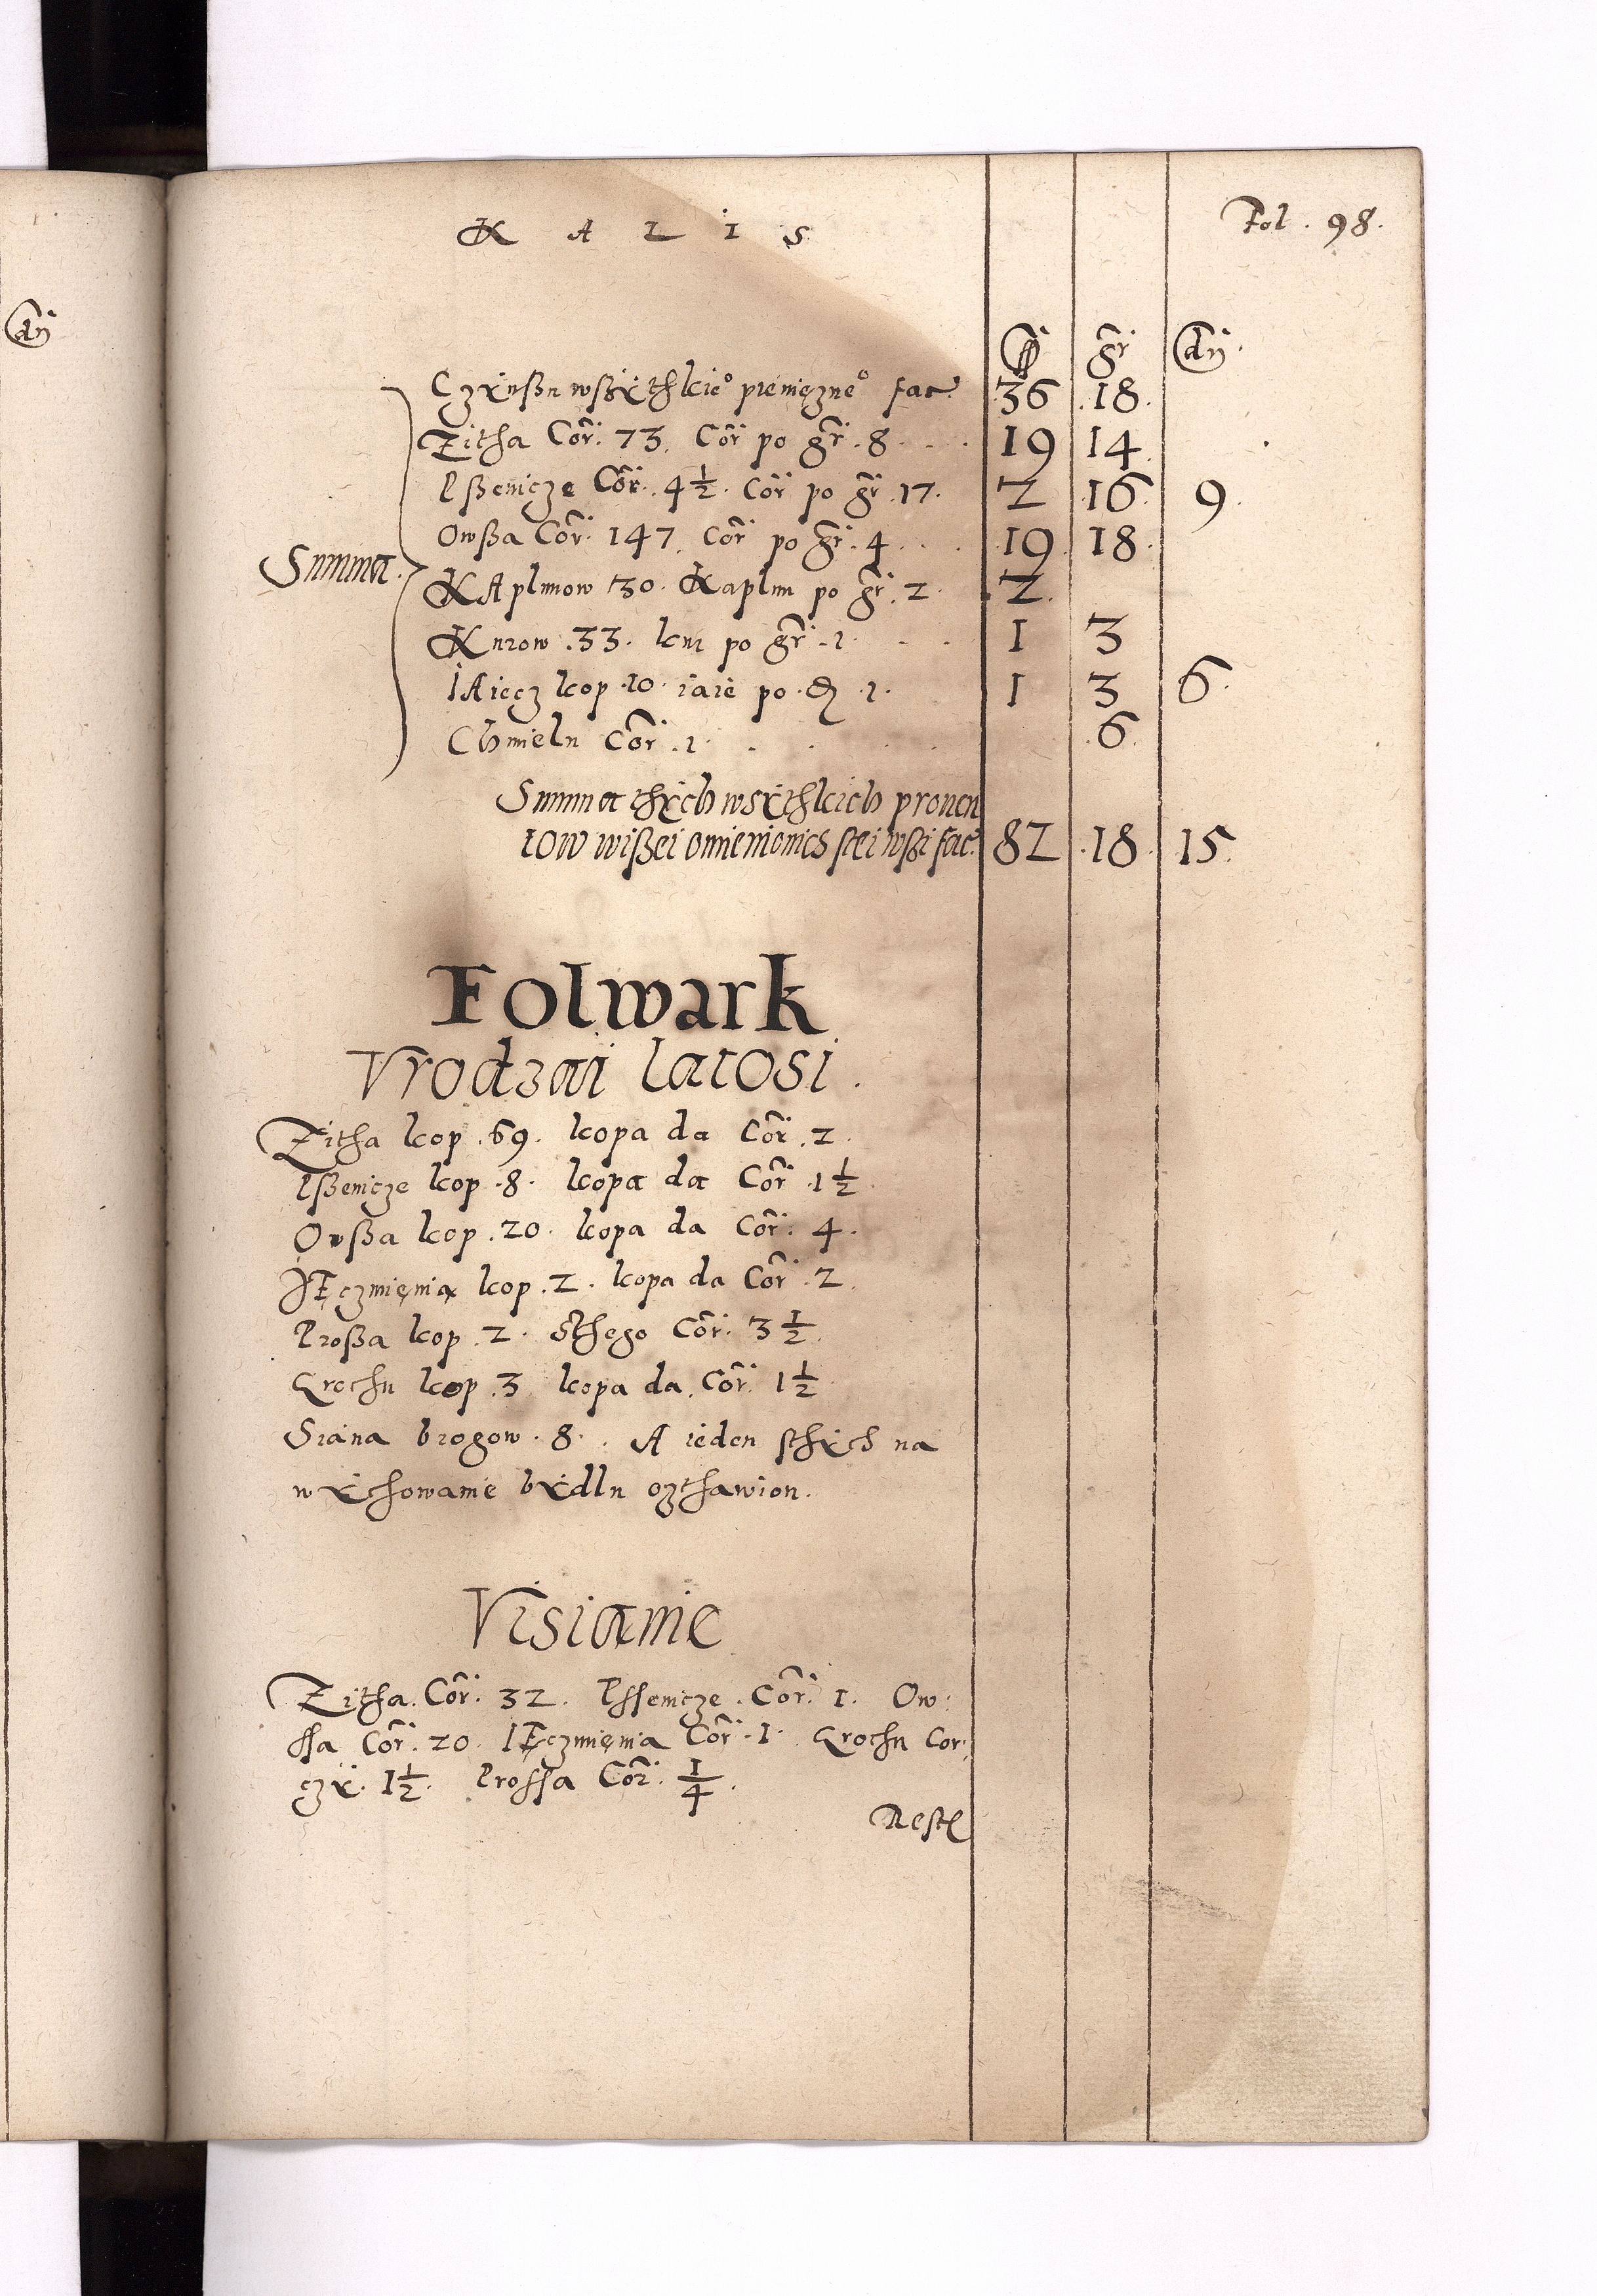 K A L I S
Fol. 98.
fl gr dn
dn
Czÿnßu wßÿthkie° pienięzne° fac. 36 .18.
Zitha Cor. 73. Cor po gr. 8 . . . 19 14.
Pßenicze Cor. 4 1/2. Cor po gr. 17. 2 .16 9.
Owßa Cor. 147. Cor po gr. 4 . . . 19 18.
Summa.
KAplunow 30. Kaplun po gr. 2. 2.
Kurow .33. kur po gr. 1 . . . 1 3
IAiecz kop .10. iaie po d. 1. 1 3 6.
Chmielu Cor. 1 . . . .6.
Summa thÿch wsÿthkich prouen
tow wißei omienionich stei wßi fac. 82 .18. 15.
Folwark
Vrodzai latosi.
Zitha kop .69. kopa da Cor. 2.
Pßenicze kop .8. kopa da Cor .1 1/2
Owßa kop .20. kopa da Cor. 4.
JEczmięnia kop .2. kopa da Cor .2.
Proßa kop .2. sthego Cor. 3 1/2.
Grochu kop .3 kopa da Cor. 1 1/2
Siana brogow .8. A ieden sthÿch na
wÿchowanie bÿdlu ozthawion.
Visianie
Zitha. Cor. 32. Pssenicze. Cor. 1. Ow:
ssa Cor. 20. IEczmięnia Cor. 1. Grochu Cor:
czÿ. 1 1/2. Prossa Cor. 1/4.
Rest